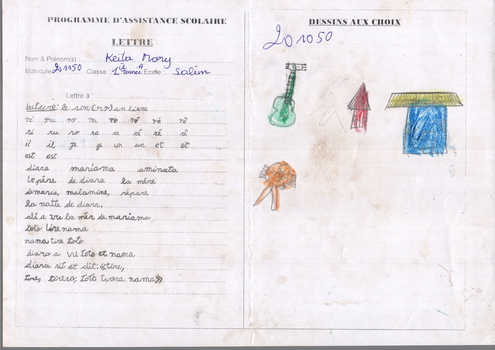 PROGRAMME D'ASSISTANCE SCOLAIRE
LETTRE
Nom & Prénom(s) : Keita Mory
Matricule 201050 Classe : 1ère Année A Ecole : Salim
Lettre à
lecture: le son
ri ru ro
ri ru ro ra a
il il je je un un et et
est est
diara mariama aminata
le père de diara la mère
de maria, malamine, répare
la natte de diara.
ali a vu la mère de mariama
toto lire nama
nama tire toto
diara a vu toto et nama
diara rit et dit: «tire,
tire, tirera, toto tirera nama»
DESSINS AUX CHOIX
201050